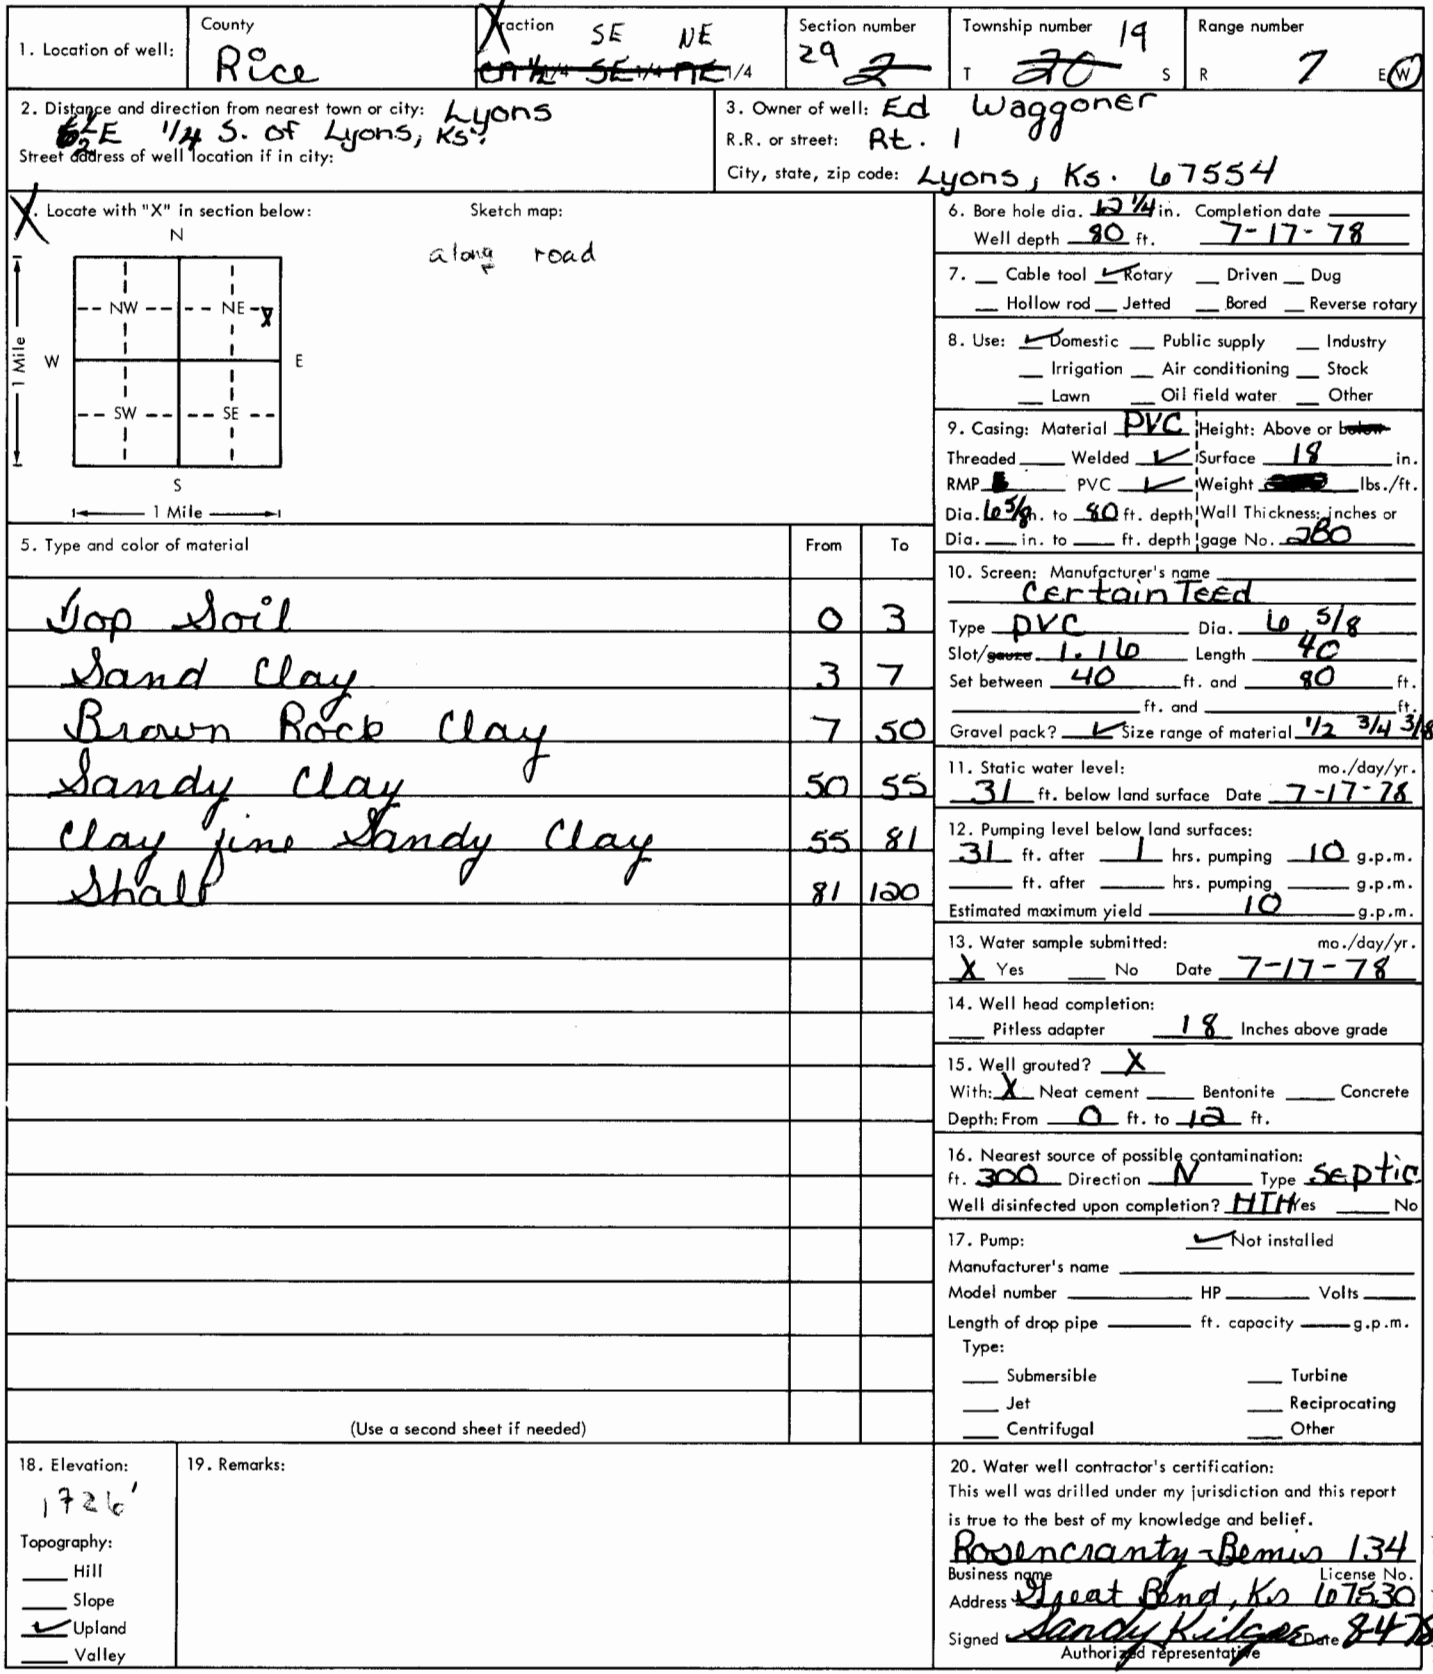 1. Location of well:
County
Rice
Fraction SE NE
1/4 SE 1/4 NE 1/4
Section number
29 2
Township number 19
T 20 S
Range number
R 7 E W
2. Distance and direction from nearest town or city: Lyons
E 1/4 S. of Lyons, Ks.
Street address of well location if in city:
3. Owner of well: Ed Waggoner
R.R. or street: Rt. 1
City, state, zip code: Lyons, Ks. 67554
Locate with "X" in section below:
Sketch map:
along road
N
NW NE X
W E
SW SE
S
1 Mile
1 Mile
5. Type and color of material From To
Top Soil 0 3
Sand Clay 3 7
Brown Rock Clay 7 50
Sandy Clay 50 55
Clay fine Sandy Clay 55 81
Shale 81 120
(Use a second sheet if needed)
6. Bore hole dia. 12 1/4 in. Completion date
Well depth 80 ft. 7-17-78
7. Cable tool ✓ Rotary Driven Dug
Hollow rod Jetted Bored Reverse rotary
8. Use: ✓ Domestic Public supply Industry
Irrigation Air conditioning Stock
Lawn Oil field water Other
9. Casing: Material PVC Height: Above or below
Threaded Welded ✓ Surface 18 in.
RMP PVC ✓ Weight lbs./ft.
Dia. 6 5/8 in. to 80 ft. depth Wall Thickness: inches or
Dia. in. to ft. depth gage No. 280
10. Screen: Manufacturer's name
CertainTeed
Type PVC Dia. 6 5/8
Slot/gauze 1.16 Length 40
Set between 40 ft. and 80 ft.
ft. and ft.
Gravel pack? ✓ Size range of material 1/2 3/4 3/8
11. Static water level: mo./day/yr.
31 ft. below land surface Date 7-17-78
12. Pumping level below land surfaces:
31 ft. after 1 hrs. pumping 10 g.p.m.
ft. after hrs. pumping g.p.m.
Estimated maximum yield 10 g.p.m.
13. Water sample submitted: mo./day/yr.
X Yes No Date 7-17-78
14. Well head completion:
Pitless adapter 18 Inches above grade
15. Well grouted? X
With: X Neat cement Bentonite Concrete
Depth: From 0 ft. to 12 ft.
16. Nearest source of possible contamination:
ft. 300 Direction N Type Septic
Well disinfected upon completion? HTH Yes No
17. Pump: ✓ Not installed
Manufacturer's name
Model number HP Volts
Length of drop pipe ft. capacity g.p.m.
Type:
Submersible Turbine
Jet Reciprocating
Centrifugal Other
18. Elevation:
1726'
Topography:
Hill
Slope
✓ Upland
Valley
19. Remarks:
20. Water well contractor's certification:
This well was drilled under my jurisdiction and this report
is true to the best of my knowledge and belief.
Rosencrantz-Bemis 134
Business name License No.
Address Great Bend, Ks 67530
Signed Sandy Date 8-4-78
Authorized representative